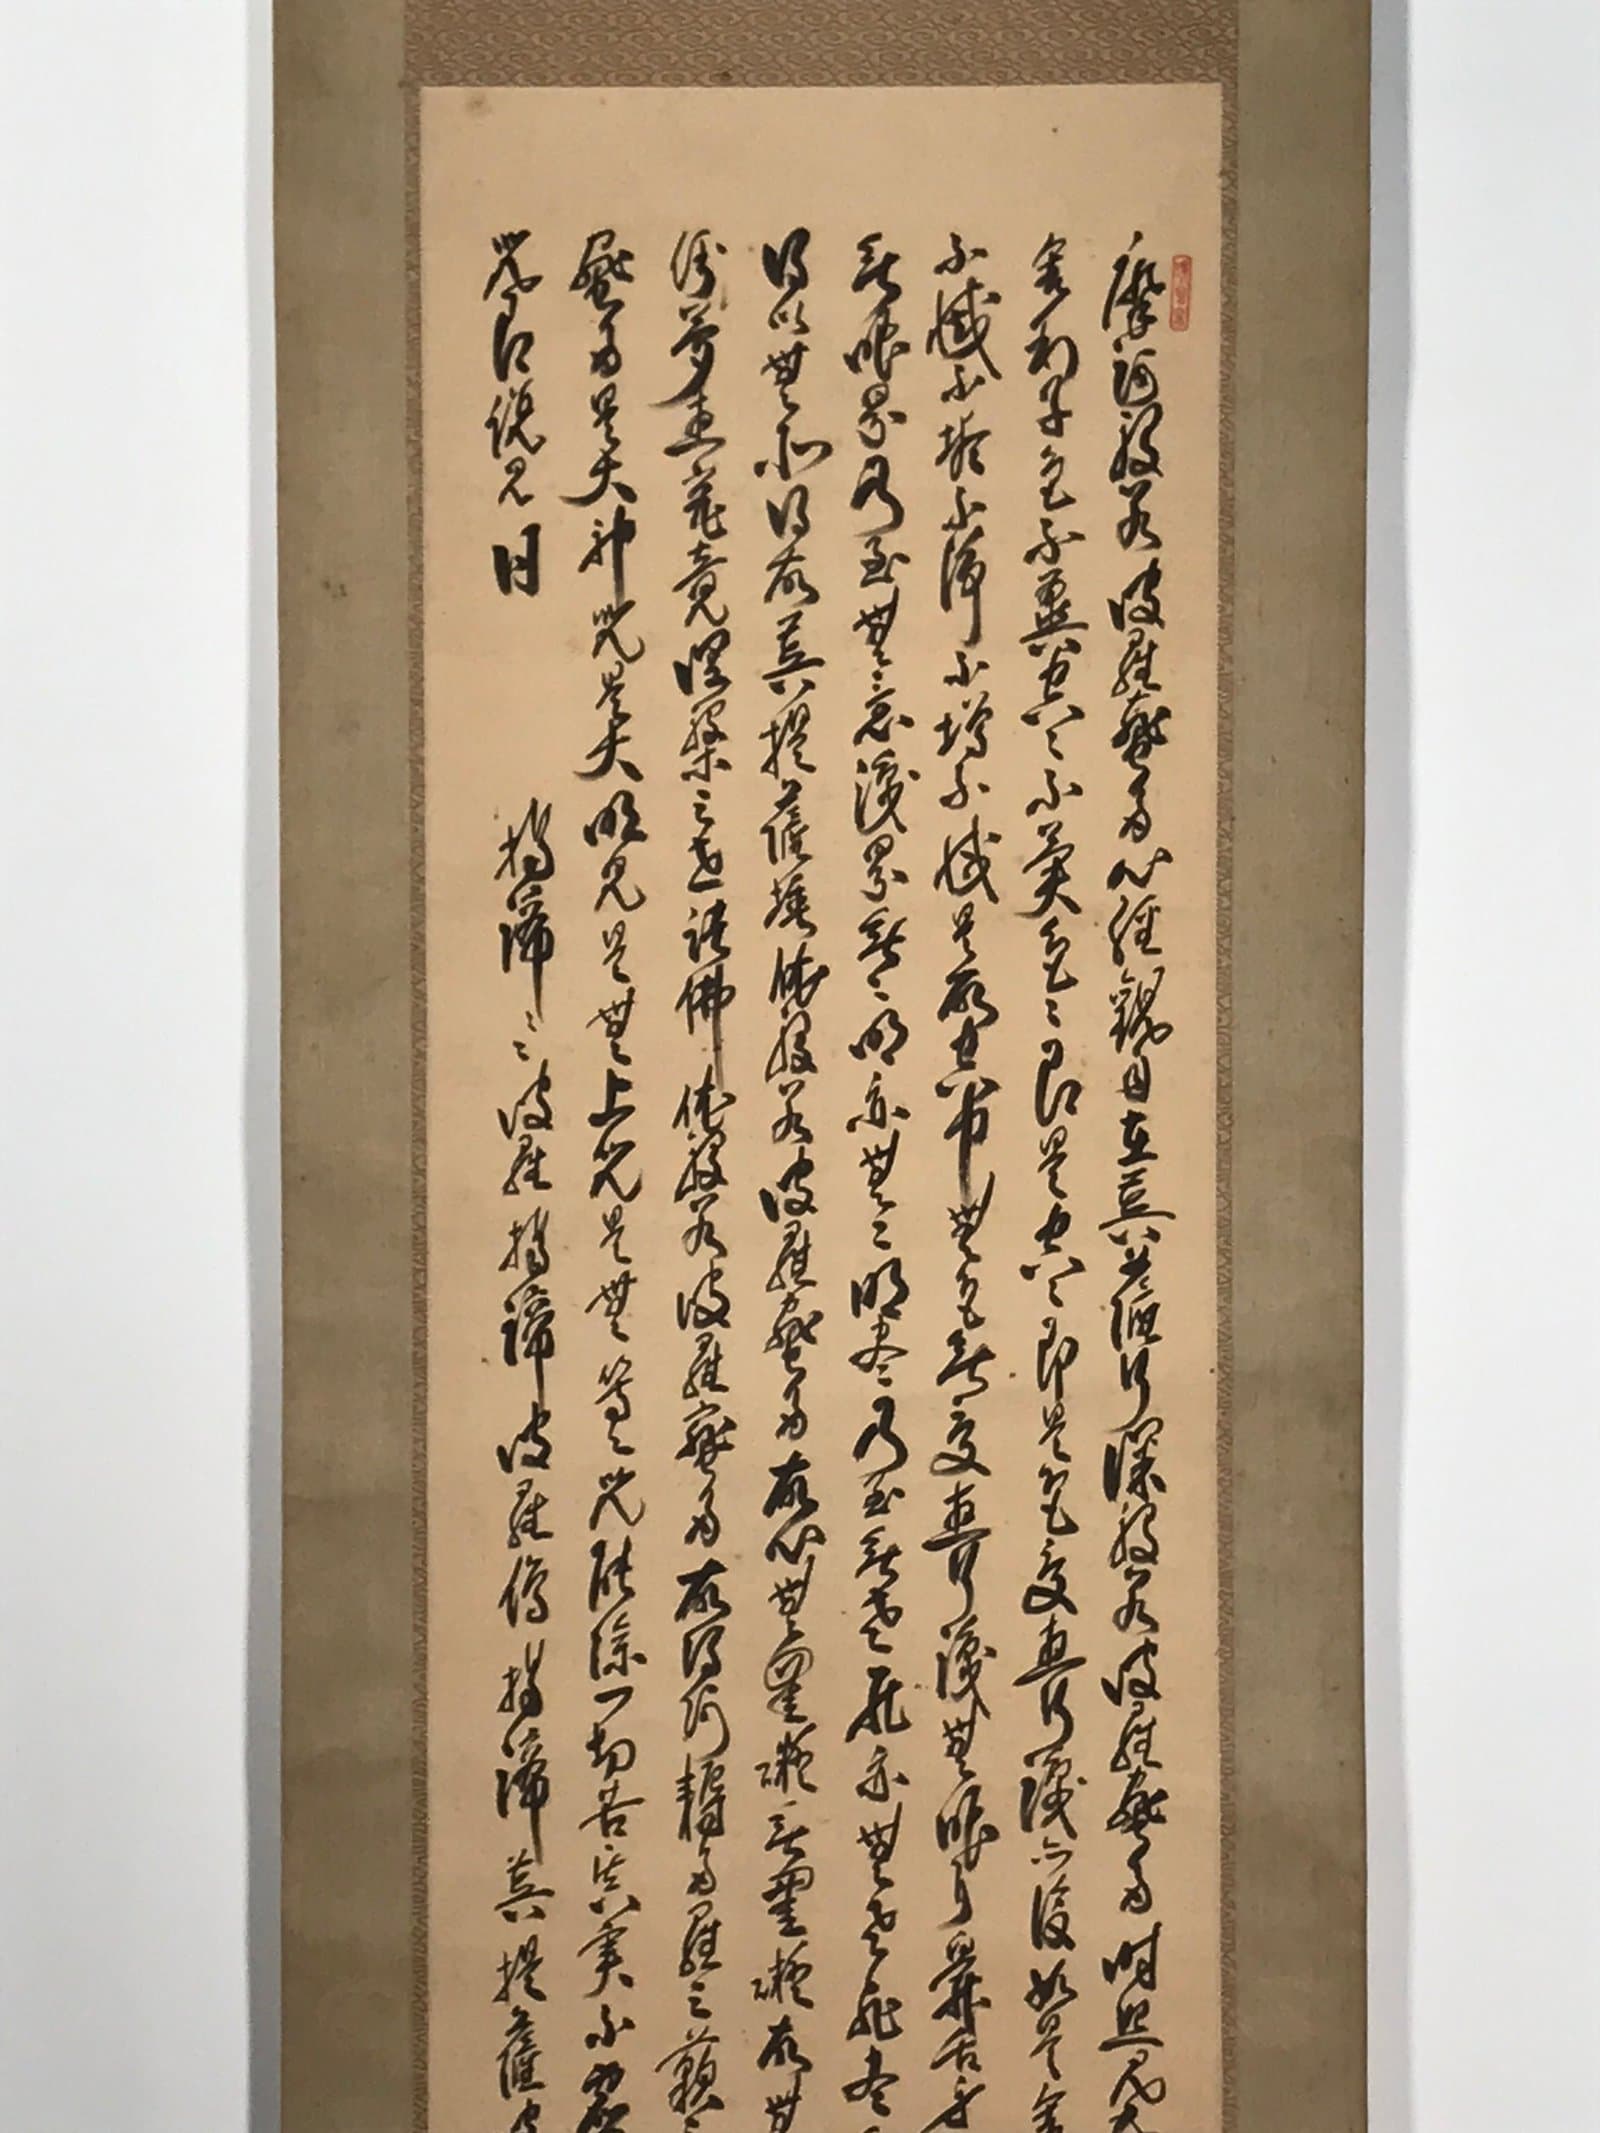 摩訶般若波羅蜜多心經觀自在菩薩行深般若波羅蜜多時照見五
舍利子色不異空〻不異色〻即是空〻即是色受想行識亦復如是舍
不滅不垢不淨不增不減是故空中無色無受想行識無眼耳鼻舌身
無眼界乃至無意識界無〻明亦無〻明盡乃至無老死亦無老死盡
得以無所得故菩提薩埵依般若波羅蜜多故心無罣礙無罣礙故無
倒夢想究竟涅槃三世諸佛依般若波羅蜜多故得阿耨多羅三藐三
蜜多是大神咒是大明咒是無上咒是無等〻咒能除一切苦真實不虛
咒即說咒曰 揭諦〻〻波羅揭諦波羅僧揭諦菩提薩婆